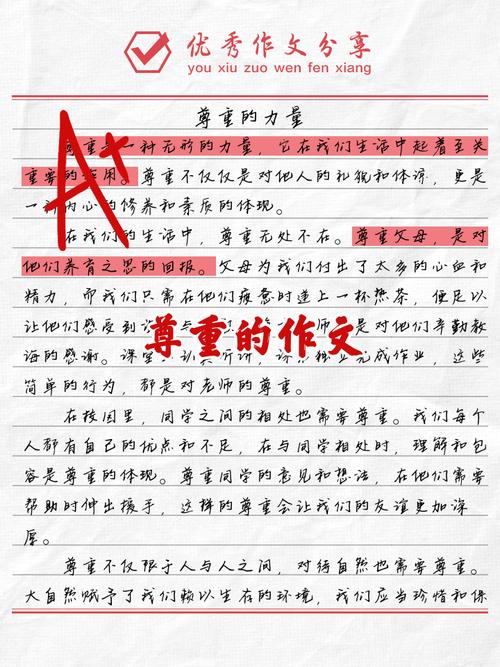 优秀作文分享
you xiu zuo wen fen xiang
尊重的力量
A+
尊重是一种无形的力量，它在我们生活中起着至关
重要的作用。尊重不仅仅是对他人的礼貌和体谅，更是
一种内心的修养和素质的体现。
在我们的生活中，尊重无处不在。尊重父母，是对
他们养育之恩的回报。父母为我们付出了太多的心血和
精力，而我们只需在他们疲惫时递上一杯热茶，便足以
让他们感受到 是对他们辛勤教
尊重的作文
诲的感谢。课堂 完成作业，这些
简单的行为，都是对老师的尊重。
在校园里，同学之间的相处也需要尊重。我们每个
人都有自己的优点和不足，在与同学相处时，理解和包
容是尊重的体现。尊重同学的意见和想法，在他们需要
帮助时伸出援手，这样的尊重会让我们的友谊更加深
厚。
尊重不仅限于人与人之间，对待自然也需要尊重。
大自然赋予了我们赖以生存的环境，我们应当珍惜和保